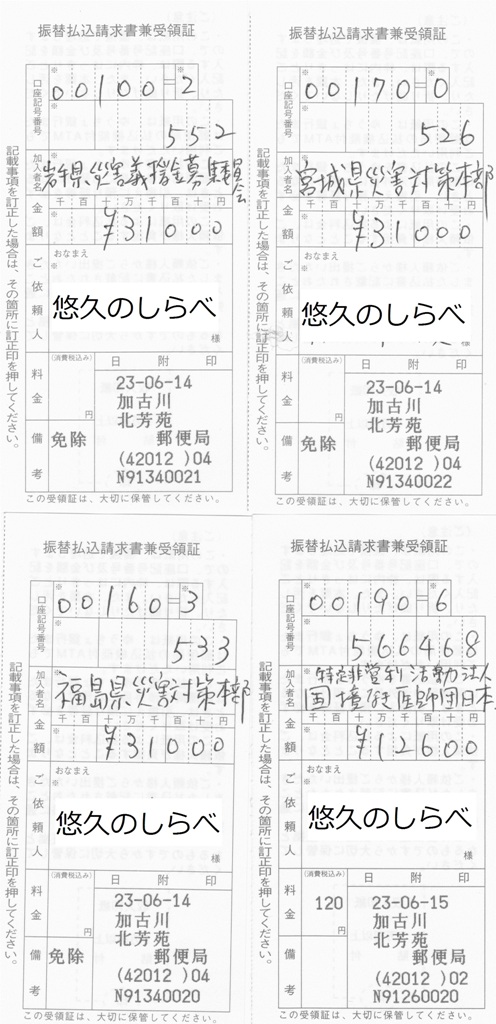 振替払込請求書兼受領証
口座記号番号
00100=2
552
加入者名
岩手県災害義援金募集委員会
金額
千百十万千百十円
¥31000
ご依頼人
おなまえ
悠久のしらべ
様
料金
(消費税込み)
円
日附印
23-06-14
加古川
北芳苑
郵便局
(42012 )04
N91340021
備考
免除
この受領証は、大切に保管してください。
記載事項を訂正した場合は、その箇所に訂正印を押してください。
振替払込請求書兼受領証
口座記号番号
00170=0
526
加入者名
宮城県災害対策本部
金額
千百十万千百十円
¥31000
ご依頼人
おなまえ
悠久のしらべ
様
料金
(消費税込み)
円
日附印
23-06-14
加古川
北芳苑
郵便局
(42012 )04
N91340022
備考
免除
この受領証は、大切に保管してください。
記載事項を訂正した場合は、その箇所に訂正印を押してください。
振替払込請求書兼受領証
口座記号番号
00160=3
533
加入者名
福島県災害対策本部
金額
千百十万千百十円
¥31000
ご依頼人
おなまえ
悠久のしらべ
様
料金
(消費税込み)
円
日附印
23-06-14
加古川
北芳苑
郵便局
(42012 )04
N91340020
備考
免除
この受領証は、大切に保管してください。
記載事項を訂正した場合は、その箇所に訂正印を押してください。
振替払込請求書兼受領証
口座記号番号
00190=6
566468
加入者名
特定非営利活動法人
国境なき医師団日本
金額
千百十万千百十円
¥12600
ご依頼人
おなまえ
悠久のしらべ
様
料金
(消費税込み)
120
円
日附印
23-06-15
加古川
北芳苑
郵便局
(42012 )02
N91260020
備考
この受領証は、大切に保管してください。
記載事項を訂正した場合は、その箇所に訂正印を押してください。